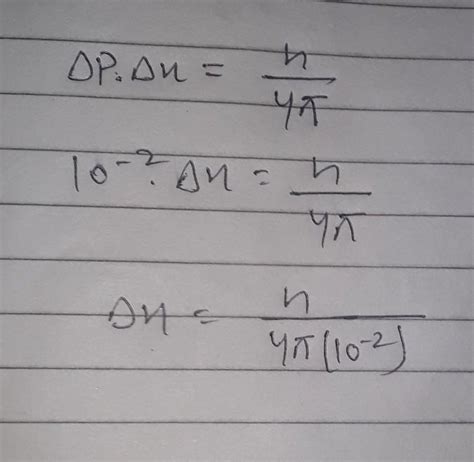 ΔP.Δx = h/4π
10⁻².Δx = h/4π
Δx = h/4π(10⁻²)